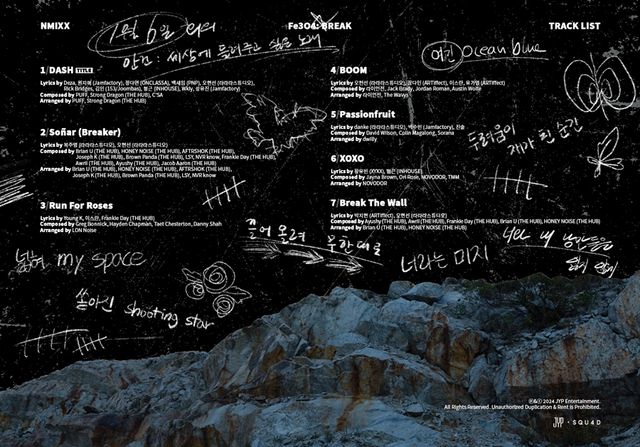 NMIXX
Fe3O4: BREAK
TRACK LIST
1월 6일 회의
안건: 세상에 들려주고 싶은 노래
여긴 ocean blue
1/DASH TITLE
Lyrics by Deza, 완자혜 (Jamfactory), 정다연 (ONCLASSA), 백새임 (PNP), 오현선 (라라라스튜디오),
Rick Bridges, 김인 (153/Joombas), 혬근 (INHOUSE), Wkly, 성유진 (Jamfactory)
Composed by PUFF, Strong Dragon (THE HUB), C'SA
Arranged by PUFF, Strong Dragon (THE HUB)
2/Soñar (Breaker)
Lyrics by 오현선 (라라라스튜디오)
Composed by Brian U (THE HUB), HONEY NOISE (THE HUB), AFTRSHOK (THE HUB),
Joseph K (THE HUB), Brown Panda (THE HUB), LSY, NVR know, Frankie Day (THE HUB),
Awrii (THE HUB), Ayushy (THE HUB), Jacob Aaron (THE HUB)
Arranged by Brian U (THE HUB), HONEY NOISE (THE HUB), AFTRSHOK (THE HUB),
Joseph K (THE HUB), Brown Panda (THE HUB), LSY, NVR know
3/Run For Roses
Lyrics by Young K, 이스란, Frankie Day (THE HUB)
Composed by Greg Bonnick, Hayden Chapman, Taet Chesterton, Danny Shah
Arranged by LDN Noise
4/BOOM
Lyrics by 오현선 (라라라스튜디오), (ARTiffect), 이스란, 유가영 (ARTiffect)
Composed by 라이언전, Jack Brady, Jordan Roman, Austin Wolfe
Arranged by 라이언전, The Wavys
5/Passionfruit
Lyrics by danke (라라라스튜디오), 백수민 (Jamfactory), 진솔
Composed by David Wilson, Colin Magalong, Sorana
Arranged by dwilly
6/XOXO
Lyrics by 황유빈 (XYXX), 혬근 (INHOUSE)
Composed by Jayna Brown, Ori Rose, NOVODOR, TMM
Arranged by NOVODOR
7/Break The Wall
Lyrics by 박지현 (ARTiffect), 오현선 (라라라스튜디오)
Composed by Ayushy (THE HUB), Awrii (THE HUB), Frankie Day (THE HUB), Brian U (THE HUB), HONEY NOISE (THE HUB)
Arranged by Brian U (THE HUB), HONEY NOISE (THE HUB)
두려움이 재가 된 순간
끌어 올려 무한대로
너와 내 낭만들은
쉽게 쉽게
넓혀 my space
너라는 미지
쏟아진 shooting star
Ⓟ&© 2024 JYP Entertainment.
All Rights Reserved. Unauthorized Duplication & Rent is Prohibited.
JYP · SQU4D